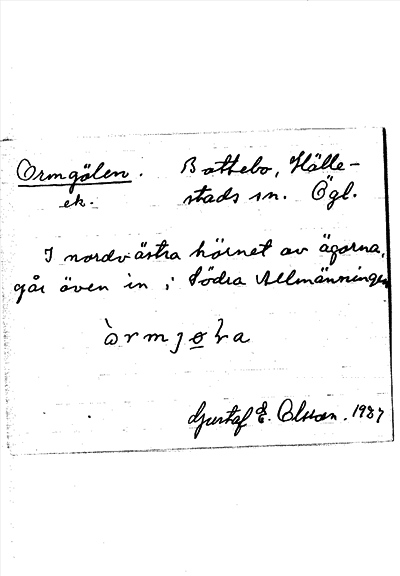 Ormgölen. Battebo, Hälle-
ek. stads sn. Ögl.
I nordvästra hörnet av ägorna,
går även in i Södra Allmänningen
Gustaf E. Olsson. 1937